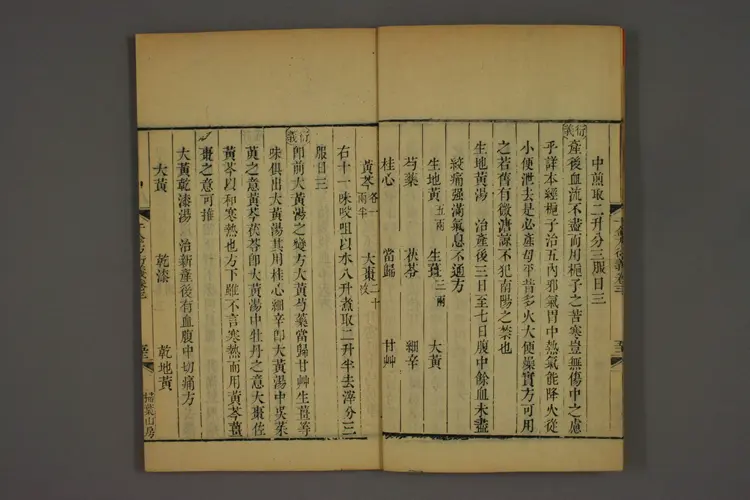 中煎取二升分三服日三
衍義
產後血流不盡而用梔子之苦寒豈無傷中之慮
乎詳本經梔子治五內邪氣胃中熱氣能降火從
小便泄去是必產母平昔多火大便燥實方可用
之若舊有微溏謹不犯南陽之禁也
生地黃湯 治產後三日至七日腹中餘血未盡
絞痛强滿氣息不通方
生地黃五兩 生薑三兩 大黃
芍藥 茯苓 細辛
桂心 當歸 甘艸
黃芩各一兩半 大棗二十枚
右十一味㕮咀以水八升煮取二升半去滓分三
服日三
衍義
卽前大黃湯之變方大黃芍藥當歸甘艸生薑等
味俱出大黃湯其用桂心細辛卽大黃湯中吳茱
萸之意黃芩茯苓卽大黃湯中牡丹之意大棗佐
黃芩以和寒熱也方下雖不言寒熱而用黃芩薑
棗之意可推
大黃乾漆湯 治新產後有血腹中切痛方
大黃 乾漆 乾地黃
千金方衍義卷三
掃葉山房